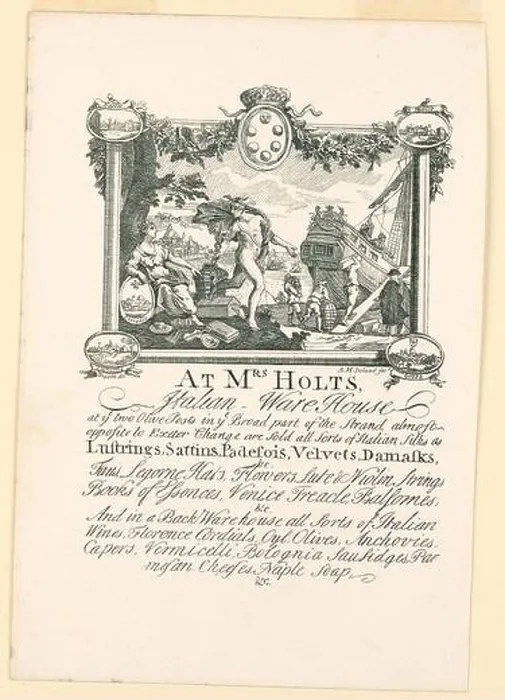 A.M. Ireland fec
AT MRS HOLTS,
Italian Ware House
at ye two Olive Posts in ye Broad part of the Strand almost
opposite to Exeter Change are sold all sorts of Italian Silks as
Lustrings, Sattins, Padesois, Velvets, Damasks,
&c.
Fans, Legorne Hats, Flowers, Lute & Violin Strings
Books of Essences, Venice Treacle, Balsomes,
&c.
And in a Back Warehouse all Sorts of Italian
Wines, Florence Cordials, Oyl Olives, Anchovies,
Capers, Vermicelli, Bolognia Sausidges, Par
mesan Cheeses, Naple Soap
&c.